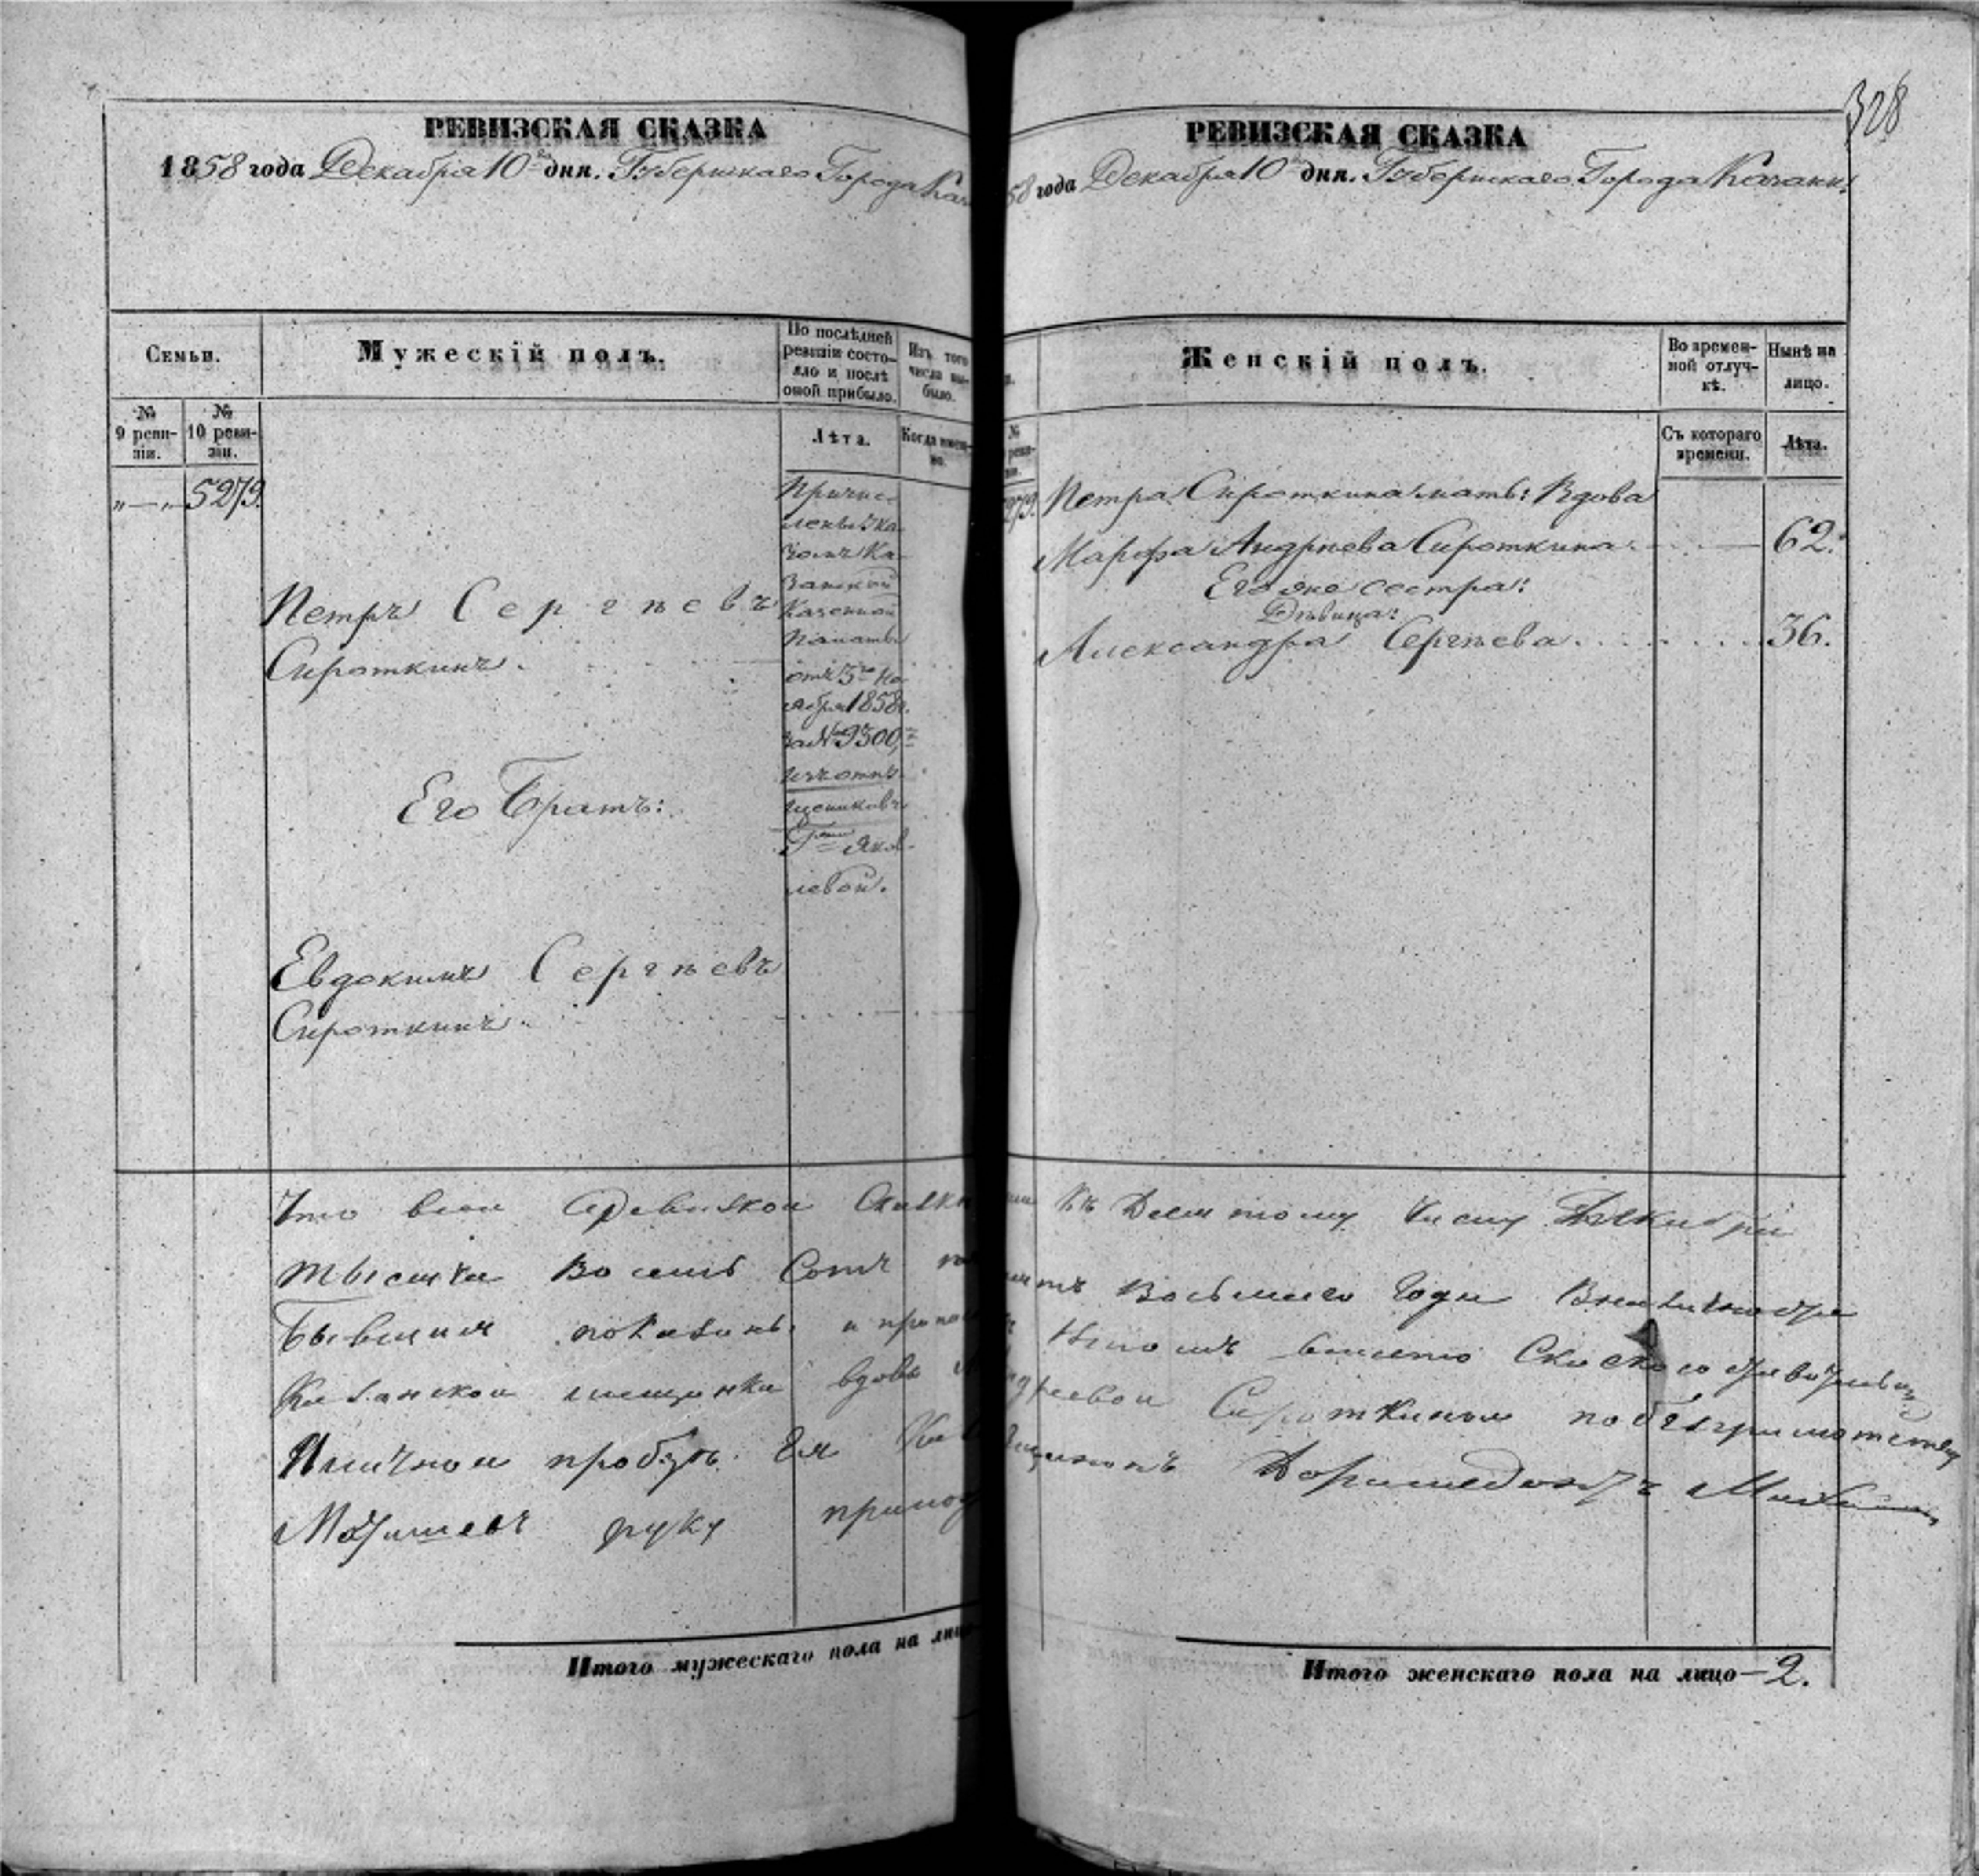 328
РЕВИЗСКАЯ СКАЗКА
1858 года Декабря 10 дня. Губернскаго Города Каз
Семьи.
Мужескій полъ.
По послѣдней ревизіи состояло и послѣ оной прибыло.
Изъ того числа выбыло.
№ 9 ревизіи.
№ 10 ревизіи.
Лѣта.
Когда именно.
"—" 5279.
Петръ Сергѣевъ
Сироткинъ.
Его Братъ:
Евдокимъ Сергѣевъ
Сироткинъ.
Причис
ленъ Ука
зомъ Ка
занской
Казенной
Палаты
отъ 5го Но
ября 1858г.
за № 9300,
изъ отпу
щенниковъ
Гжи Яков
левой.
Что въ сей Ревизкой Сказки
тысяча Восемь Сотъ
Бывшия показаны и
Казанской мещанки вдовы
прозбѣ Ея
руку
Итого мужескаго пола на лицо
РЕВИЗСКАЯ СКАЗКА
58 года Декабря 10 дня. Губернскаго Города Казани.
Женскій полъ.
Во временной отлучкѣ.
Нынѣ на лицо.
Съ котораго времени.
Лѣта.
279. Петра Сироткина мать: Вдова
Марфа Андрѣева Сироткина. — 62.
Его же сестра:
Дѣвица:
Александра Сергѣева. 36.
Къ Десятому Числу Декабря
Восьмаго Года
вместо
Сироткиной по безграмотству
Итого женскаго пола на лицо — 2.